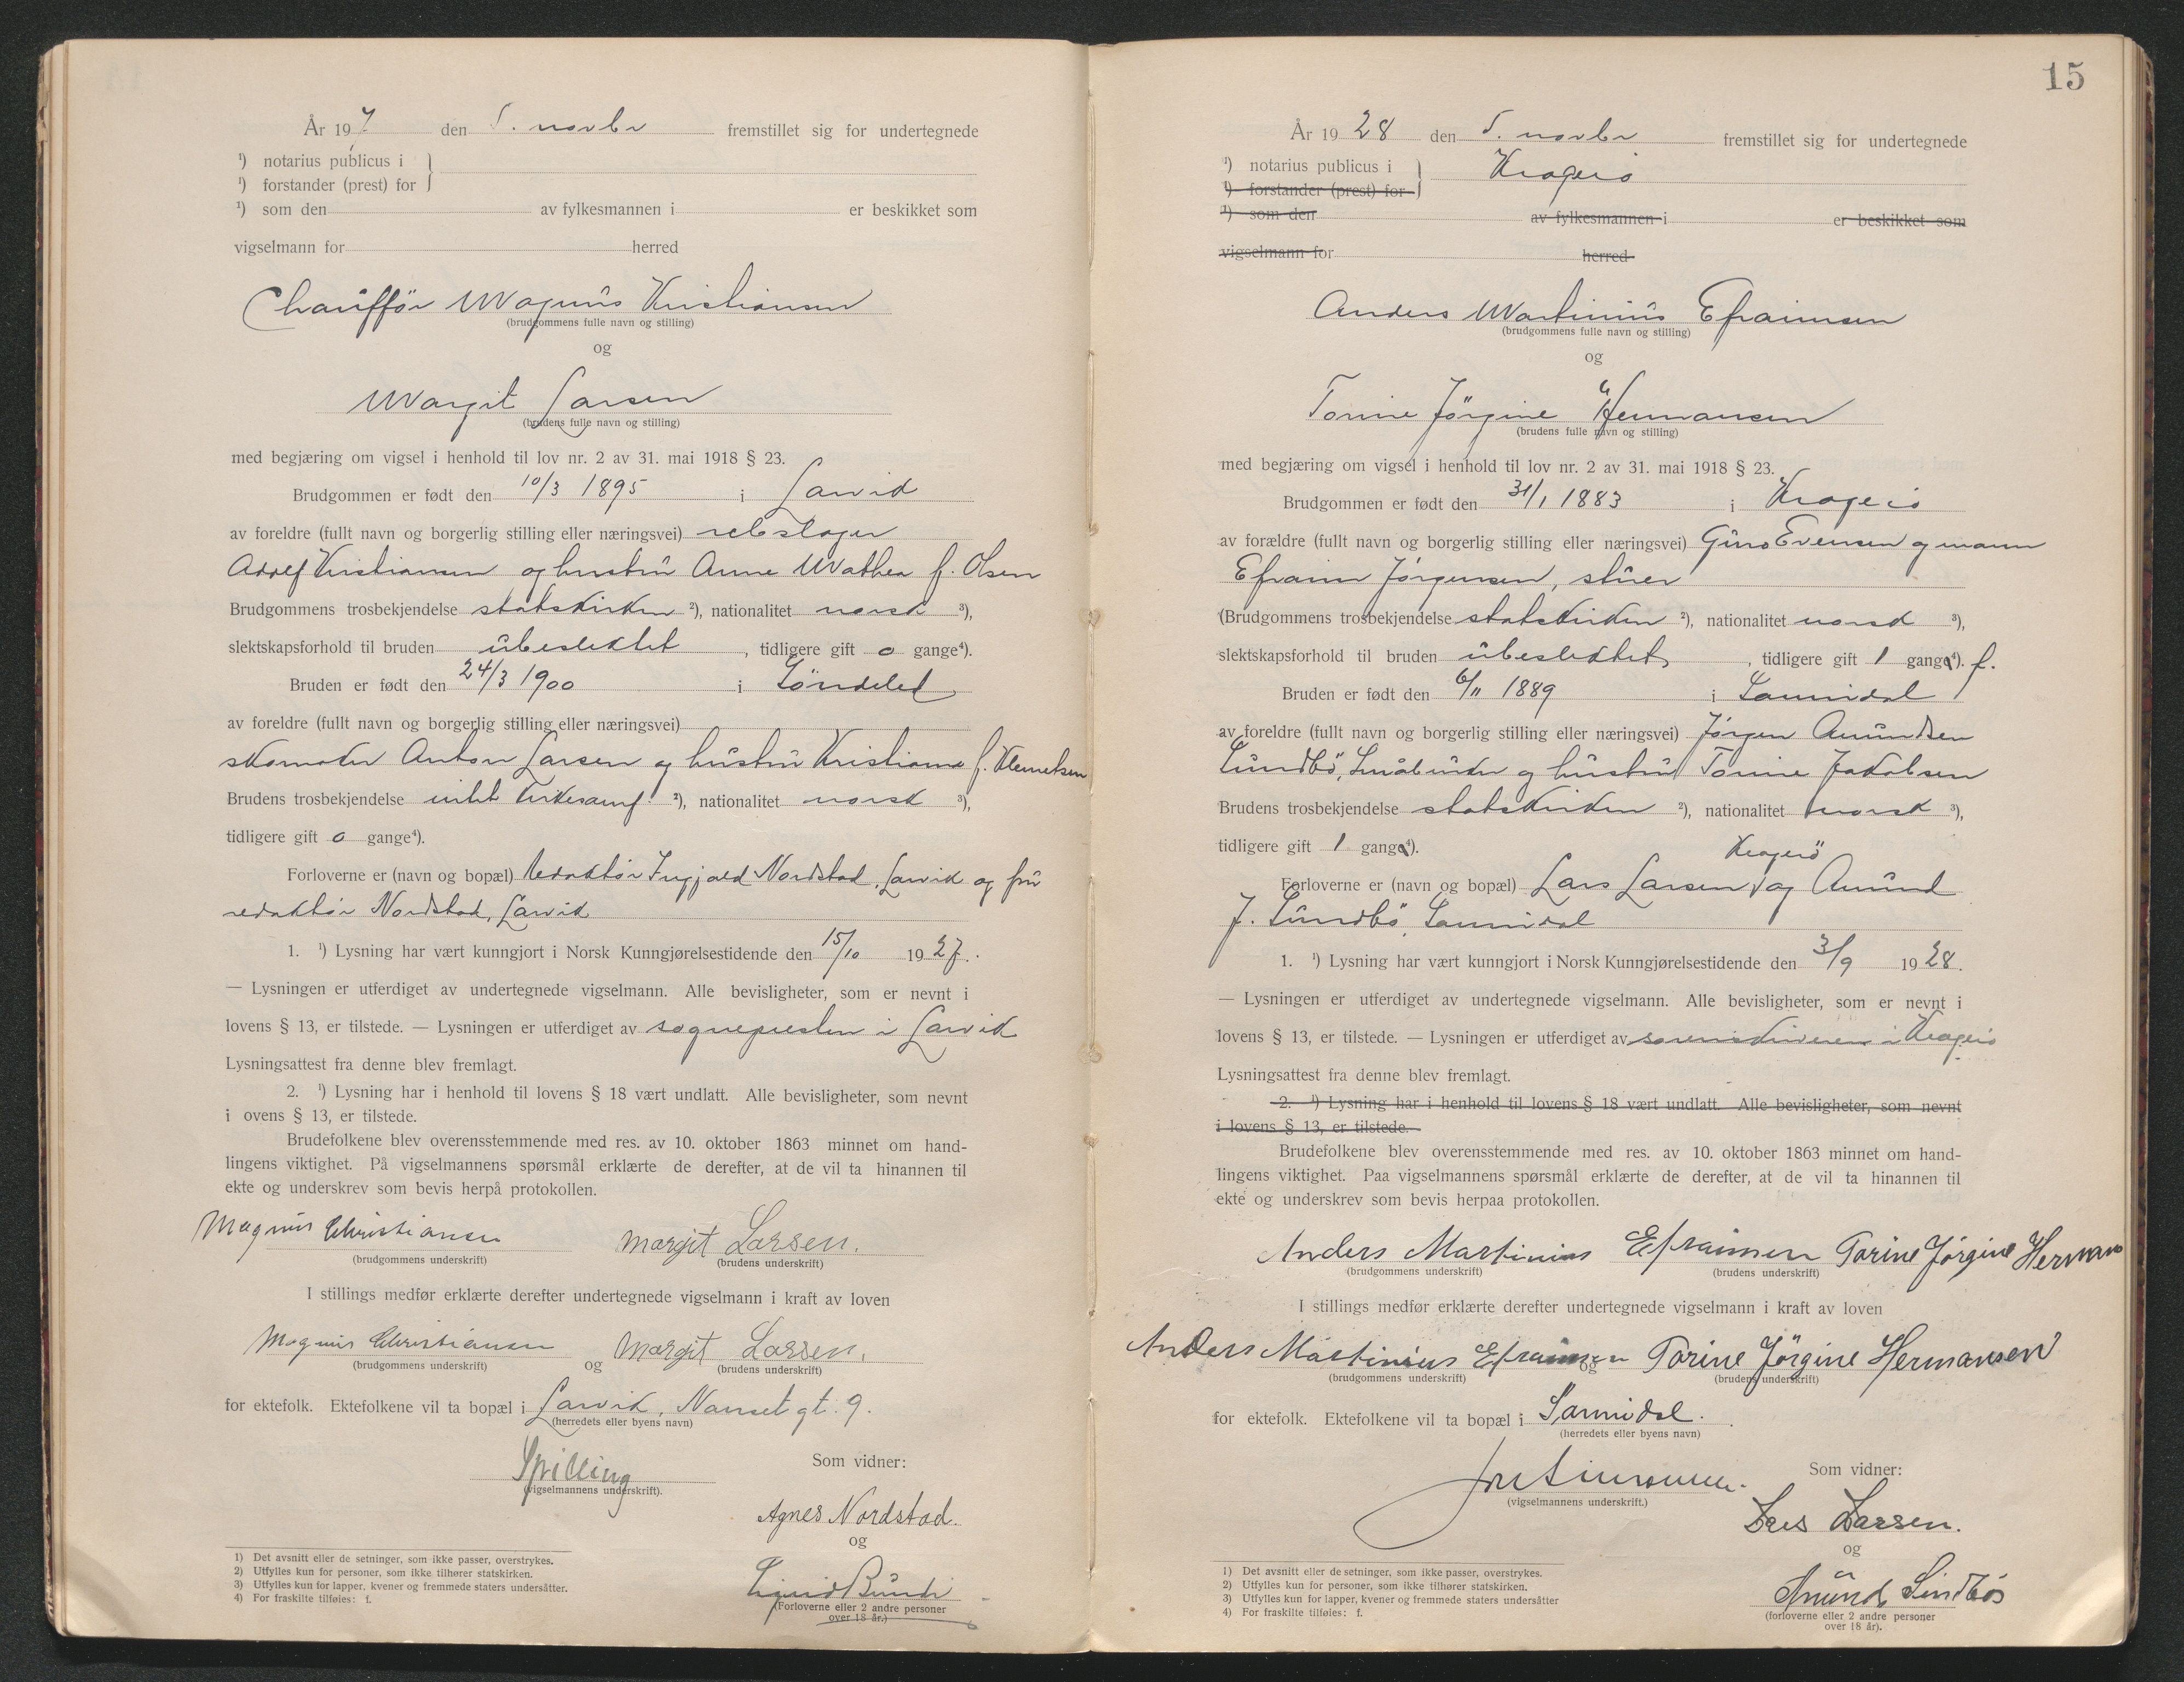 År 197 den 5. novbr fremstillet sig for undertegnede
¹) notarius publicus i
¹) forstander (prest) for
¹) som den av fylkesmannen i er beskikket som
vigselmann for herred
Chauffør Magnus Kristiansen
(brudgommens fulle navn og stilling)
og
Margit Larsen
(brudens fulle navn og stilling)
med begjæring om vigsel i henhold til lov nr. 2 av 31. mai 1918 § 23.
Brudgommen er født den 10/3 1895 i Larvik
av foreldre (fullt navn og borgerlig stilling eller næringsvei) rebslager
Adolf Kristiansen og hustru Anne Mathea f. Olsen
Brudgommens trosbekjendelse statskirken ²), nationalitet norsk ³),
slektskapsforhold til bruden ubeslektet, tidligere gift 0 gange⁴).
Bruden er født den 24/3 1900 i Søndeled
av foreldre (fullt navn og borgerlig stilling eller næringsvei)
skomaker Anton Larsen og hustru Kristiane f. Klemetsen
Brudens trosbekjendelse intet kirkesamf. ²), nationalitet norsk ³),
tidligere gift 0 gange⁴).
Forloverne er (navn og bopæl) Redaktør Ingjald Nordstad, Larvik og fru
redaktør Nordstad, Larvik
1. ¹) Lysning har vært kunngjort i Norsk Kunngjørelsestidende den 15/10 1927.
— Lysningen er utferdiget av undertegnede vigselmann. Alle bevisligheter, som er nevnt i
lovens § 13, er tilstede. — Lysningen er utferdiget av sognepresten i Larvik
Lysningsattest fra denne blev fremlagt.
2. ¹) Lysning har i henhold til lovens § 18 vært undlatt. Alle bevisligheter, som nevnt
i ovens § 13, er tilstede.
Brudefolkene blev overensstemmende med res. av 10. oktober 1863 minnet om hand-
lingens viktighet. På vigselmannens spørsmål erklærte de derefter, at de vil ta hinannen til
ekte og underskrev som bevis herpå protokollen.
Magnus Christiansen Margit Larsen.
(brudgommens underskrift) (brudens underskrift)
I stillings medfør erklærte derefter undertegnede vigselmann i kraft av loven
Magnus Christiansen og Margit Larsen.
(brudgommens underskrift) (brudens underskrift)
for ektefolk. Ektefolkene vil ta bopæl i Larvik, Nanset gt. 9.
(herredets eller byens navn)
Spilling
(vigselmannens underskrift).
Som vidner:
Agnes Nordstad.
og
(Forloverne eller 2 andre personer
over 18 år.)
1) Det avsnitt eller de setninger, som ikke passer, overstrykes.
2) Utfylles kun for personer, som ikke tilhører statskirken.
3) Utfylles kun for lapper, kvener og fremmede staters undersåtter.
4) For fraskilte tilføies: f.
15
År 1928 den 5. novbr fremstillet sig for undertegnede
¹) notarius publicus i Kragerø
¹) forstander (prest) for
¹) som den av fylkesmannen i er beskikket som
vigselmann for herred
Anders Martinius Efraimsen
(brudgommens fulle navn og stilling)
og
Torine Jörgine Hermansen
(brudens fulle navn og stilling)
med begjæring om vigsel i henhold til lov nr. 2 av 31. mai 1918 § 23.
Brudgommen er født den 31/1 1883 i Kragerø
av forældre (fullt navn og borgerlig stilling eller næringsvei) Evensen og mann
Efraim Jørgensen, stuer
(Brudgommens trosbekjendelse statskirken ²), nationalitet norsk ³),
slektskapsforhold til bruden ubeslektet, tidligere gift 1 gang⁴). f.
Bruden er født den 6/11 1889 i Sannidal
av foreldre (fullt navn og borgerlig stilling eller næringsvei) Jörgen Amundsen
Lundbø, Småbruker og hustru Torine Jakobsen
Brudens trosbekjendelse statskirken ²), nationalitet norsk ³),
tidligere gift 1 gang⁴).
Kragerö
Forloverne er (navn og bopæl) Lars Larsen og Amund
J. Lundbø, Sannidal
1. ¹) Lysning har vært kunngjort i Norsk Kunngjørelsestidende den 3/9 1928.
— Lysningen er utferdiget av undertegnede vigselmann. Alle bevisligheter, som er nevnt i
lovens § 13, er tilstede. — Lysningen er utferdiget av sorenskriveren i Kragerø
Lysningsattest fra denne blev fremlagt.
2. ¹) Lysning har i henhold til lovens § 18 vært undlatt. Alle bevisligheter, som nevnt
i lovens § 13, er tilstede.
Brudefolkene blev overensstemmende med res. av 10. oktober 1863 minnet om hand-
lingens viktighet. Paa vigselmannens spørsmål erklærte de derefter, at de vil ta hinannen til
ekte og underskrev som bevis herpaa protokollen.
Anders Martinius Efraimsen Torine Jørgine Herman
(brudgommens underskrift) (brudens underskrift)
I stillings medfør erklærte derefter undertegnede vigselmann i kraft av loven
Anders Martinius Efraimsen og Torine Jørgine Hermansen
(brudgommens underskrift) (brudens underskrift)
for ektefolk. Ektefolkene vil ta bopæl i Sannidal.
(herredets eller byens navn)
(vigselmannens underskrift.)
Som vidner:
Lars Larsen.
og
Amund Lindbøs
(forloverne eller 2 andre personer
over 18 år).
1) Det avsnitt eller de setninger, som ikke passer, overstrykes.
2) Utfylles kun for personer, som ikke tilhører statskirken.
3) Utfylles kun for lapper, kvener og fremmede staters undersåtter
4) For fraskilte tilføies: f.